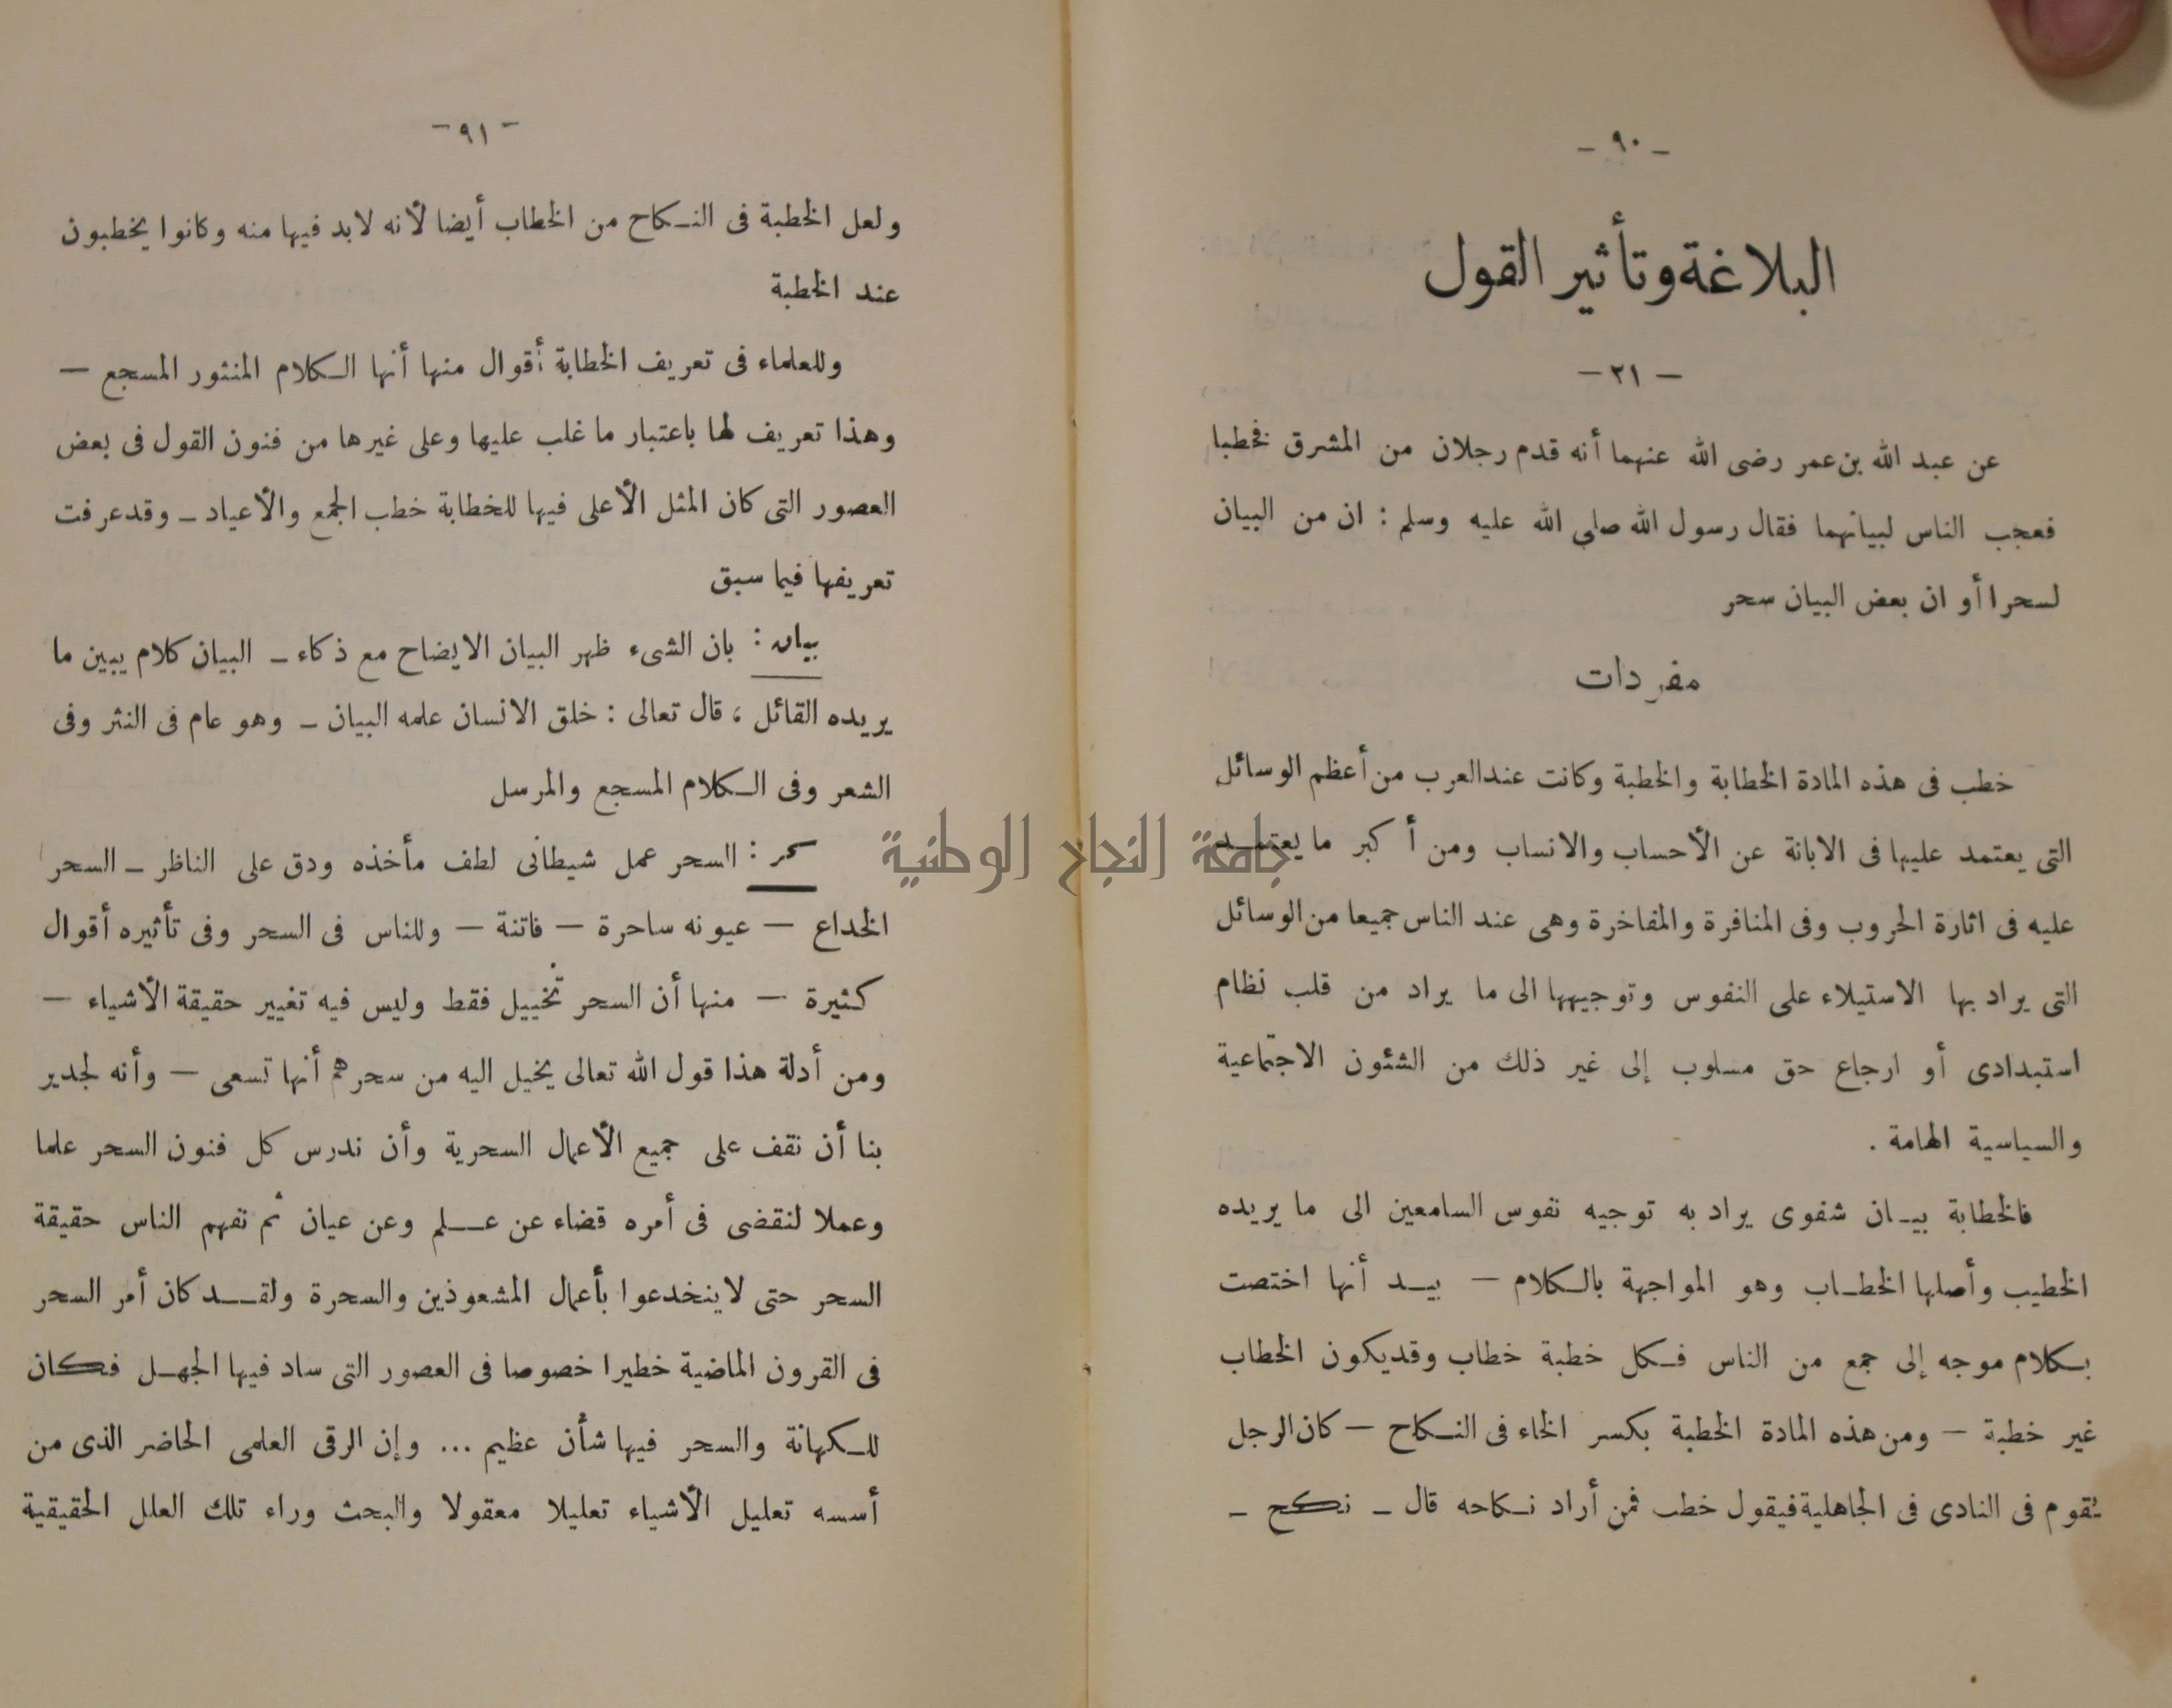 - ٩٠ -
البلاغة وتأثير القول
- ٢١ -
عن عبد الله بن عمر رضى الله عنهما أنه قدم رجلان من المشرق فخطبا
فعجب الناس لبيانهما فقال رسول الله صلى الله عليه وسلم : ان من البيان
لسحرا أو ان بعض البيان سحر
مفردات
خطب فى هذه المادة الخطابة والخطبة وكانت عند العرب من أعظم الوسائل
التى يعتمد عليها فى الابانة عن الأحساب والانساب ومن أكبر ما يعتمد
عليه فى اثارة الحروب وفى المنافرة والمفاخرة وهى عند الناس جميعا من الوسائل
التى يراد بها الاستيلاء على النفوس وتوجيهها الى ما يراد من قلب نظام
استبدادى أو ارجاع حق مسلوب إلى غير ذلك من الشئون الاجتماعية
والسياسية الهامة .
فالخطابة بيان شفوى يراد به توجيه نفوس السامعين الى ما يريده
الخطيب وأصلها الخطاب وهو المواجهة بالكلام — بيد أنها اختصت
بكلام موجه إلى جمع من الناس فكل خطبة خطاب وقد يكون الخطاب
غير خطبة — ومن هذه المادة الخطبة بكسر الخاء فى النكاح — كان الرجل
يقوم فى النادى فى الجاهلية فيقول خطب فمن أراد نكاحه قال — نكح —
- ٩١ -
ولعل الخطبة فى النكاح من الخطاب أيضا لأنه لابد فيها منه وكانوا يخطبون
عند الخطبة
وللعلماء فى تعريف الخطابة أقوال منها أنها الكلام المنثور المسجع —
وهذا تعريف لها باعتبار ما غلب عليها وعلى غيرها من فنون القول فى بعض
العصور التى كان المثل الأعلى فيها للخطابة خطب الجمع والأعياد — وقد عرفت
تعريفها فيما سبق
بيان : بان الشىء ظهر البيان الايضاح مع ذكاء — البيان كلام يبين ما
يريده القائل ، قال تعالى : خلق الانسان علمه البيان — وهو عام فى النثر وفى
الشعر وفى الكلام المسجع والمرسل
سحر : السحر عمل شيطانى لطف مأخذه ودق على الناظر — السحر
الخداع — عيونه ساحرة — فاتنة — وللناس فى السحر وفى تأثيره أقوال
كثيرة — منها أن السحر تخييل فقط وليس فيه تغيير حقيقة الأشياء —
ومن أدلة هذا قول الله تعالى يخيل اليه من سحرهم أنها تسعى — وأنه لجدير
بنا أن نقف على جميع الأعمال السحرية وأن ندرس كل فنون السحر علما
وعملا لنقضى فى أمره قضاء عن علم وعن عيان ثم نفهم الناس حقيقة
السحر حتى لا ينخدعوا بأعمال المشعوذين والسحرة ولقد كان أمر السحر
فى القرون الماضية خطيرا خصوصا فى العصور التى ساد فيها الجهل فكان
للكهانة والسحر فيها شأن عظيم ... وإن الرقى العلمى الحاضر الذى من
أسسه تعليل الأشياء تعليلا معقولا والبحث وراء تلك العلل الحقيقية
جامعة النجاح الوطنية